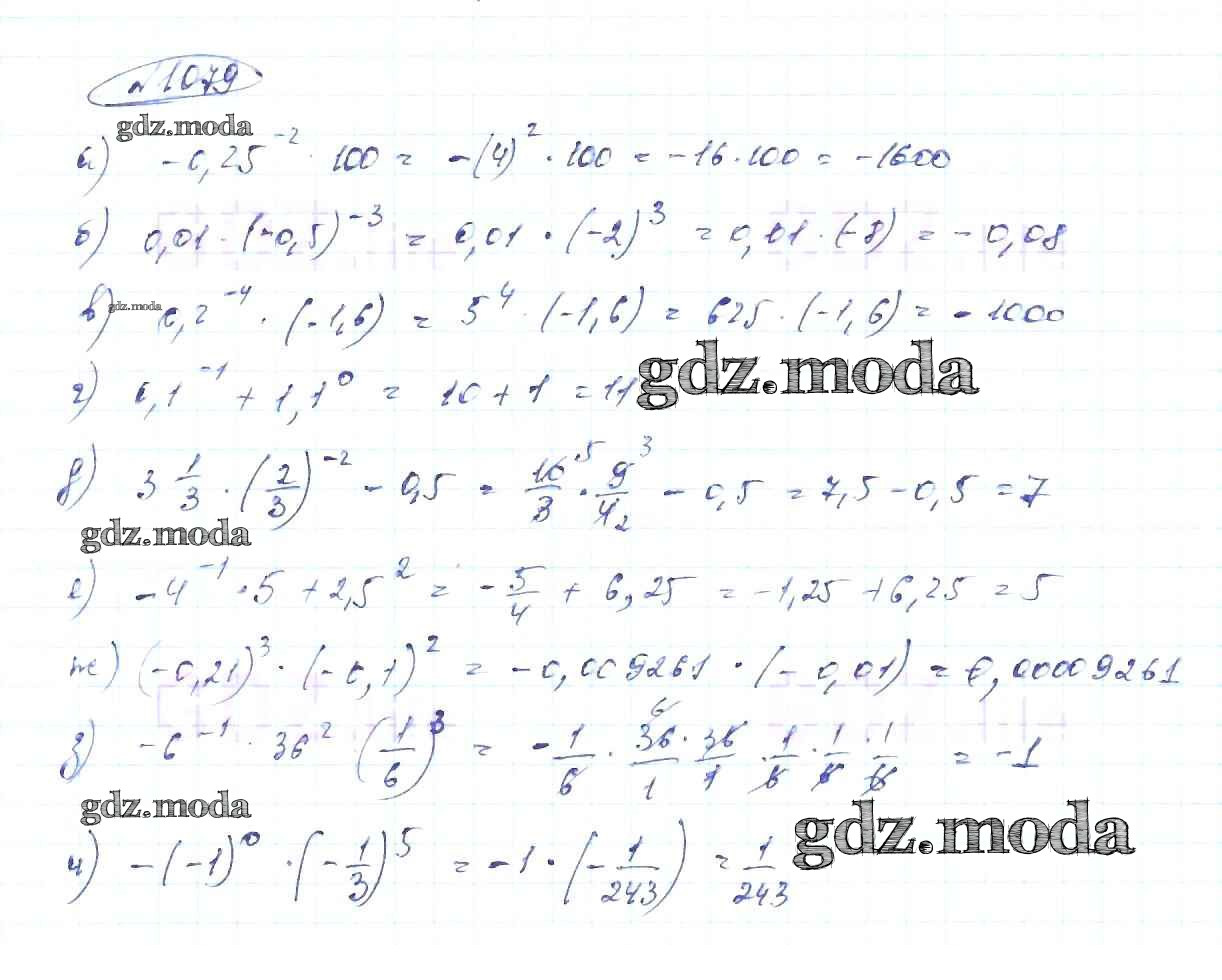 №1079
gdz.moda
а) -0,25^-2 · 100 = -(4)^2 · 100 = -16·100 = -1600
б) 0,01 · (-0,5)^-3 = 0,01 · (-2)^3 = 0,01 · (-8) = -0,08
в) gdz.moda 0,2^-4 · (-1,6) = 5^4 · (-1,6) = 625 · (-1,6) = -1000
г) 0,1^-1 + 1,1^0 = 10 + 1 = 11
gdz.moda
д) 3 1/3 · (2/3)^-2 - 0,5 = 10/3 5 · 9/4 3 2 - 0,5 = 7,5 - 0,5 = 7
gdz.moda
е) -4^-1 · 5 + 2,5^2 = -5/4 + 6,25 = -1,25 + 6,25 = 5
ж) (-0,21)^3 · (-0,1)^2 = -0,009261 · (-0,01) = 0,00009261
з) -6^-1 · 36^2 · (1/6)^3 = -1/6 · 36/1 6 · 36/1 · 1/6 · 1/6 · 1/6 = -1
gdz.moda
и) -(-1)^0 · (-1/3)^5 = -1 · (-1/243) = 1/243
gdz.moda